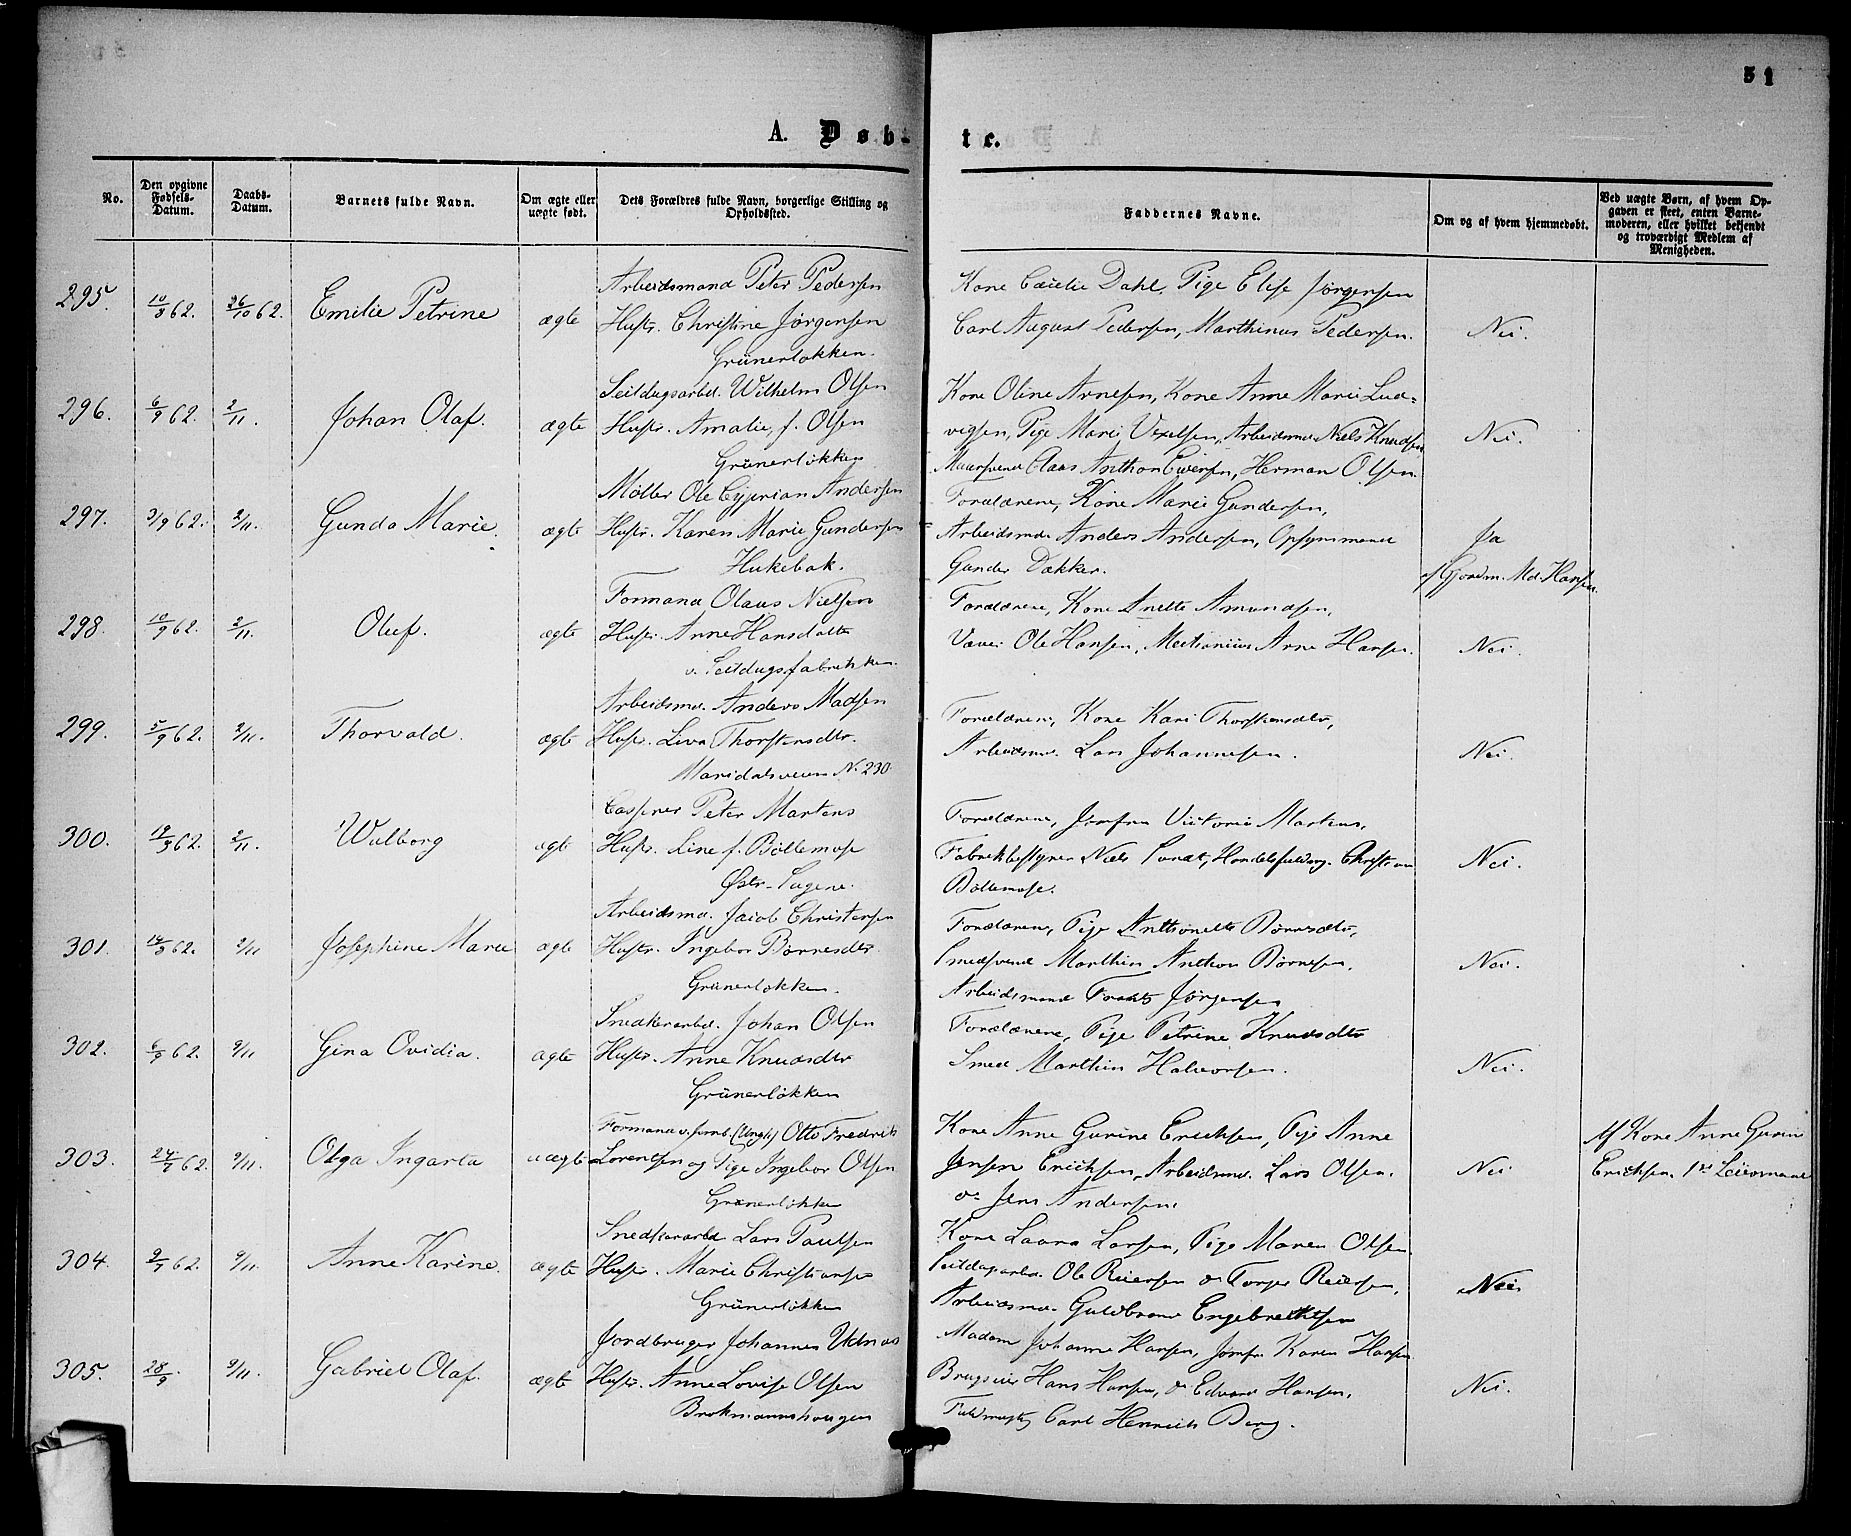 31
A. Døb-
te.
No.
Den opgivne Fødsels-Datum.
Daabs-Datum.
Barnets fulde Navn.
Om ægte eller uægte født.
Dets Forældres fulde Navn, borgerlige Stilling og Opholdssted.
Faddernes Navne.
Om og af hvem hjemmedøbt.
Ved uægte Børn, af hvem Opgaven er skeet, enten Barnemoderen, eller hvilket bekjendt og troværdigt Medlem af Menigheden.
295. 10/8 62. 26/10 62. Emilie Petrine ægte
Arbeidsmand Peter Pedersen
Hustr. Christine Jørgensen
Grünerløkken.
Kone Cæcilie Dahl, Pige Elise Jørgensen
Carl August Pedersen, Marthinus Pedersen.
Nei.
296. 6/9 62. 2/11. Johan Olaf. ægte
Seildugsarbd. Wilhelm Olsen
Hustr. Amalie, f. Olsen
Grünerløkken
Kone Oline Arnesen, Kone Anne Marie Lud-
vigsen, Pige Marie Vexelsen, Arbeidsmd. Niels Knudsen
Muursvend Claus Anthon Iversen, Herman Olsen.
Nei.
297. 3/9 62. 2/11. Gunda Marie. ægte
Møller Ole Cyprian Andersen
Hustr. Karen Marie Gundersen
Hukebak.
Forældrene, Kone Marie Gundersen,
Arbeidsmd. Anders Andersen, Opsynsmand
Gunder Dækker.
Ja
af Gjordm. Md. Hansen.
298. 10/9 62. 2/11. Oluf. ægte
Formand Olaus Nielsen
Hustr. Anne Hansdatter
v. Seildugsfabrikken.
Forældrene, Kone Anette Amundsen,
Væver Ole Hansen, Arne Hansen.
Nei.
299. 5/9 62. 2/11. Thorvald. ægte
Arbeidsmd. Anders Madsen
Hustr. Liva Thorstensdtr.
Maridalsveien No. 230
Forældrene, Kone Kari Thorstensdtr,
Arbeidsmd. Lars Johannesen.
Nei.
300. 19/9 62. 2/11. Walborg ægte
Peter Martens
Hustr. Line f. Böllemose
Østr. Sagene.
Forældrene, Jomfru Victoria Martens,
Fabrikbestyrer Niels Sundt, Handelsfuldmg. Christian
Böllemose.
Nei.
301. 14/9 62. 2/11 Josephine Marie ægte
Arbeidsmd. Jacob Christensen
Hustr. Ingebor Børresdtr.
Grünerløkken.
Forældrene, Pige Anthonette Børresdtr,
Smedsvend Marthin Anthon Børresen,
Arbeidsmand Frants Jørgensen
Nei.
302. 6/9 62. 9/11 Gina Ovidia. ægte
Snedkerarbd. Johan Olsen
Hustr. Anne Knudsdtr
Grünerløkken
Forældrene, Pige Petrine Knudsdtr
Smed Marthin Halvorsen.
Nei.
303. 24/7 62. 9/11. Olga Ingarta uægte
Formand v. Jernb. (Ungk) Otto Fredrik
Lorentsen og Pige Ingebor Olsen
Grünerløkken
Kone Anne Gurine Ericksen, Pige Anne
Jensen Ericksen, Arbeidsmd. Lars Olsen.
og Jens Andersen.
Nei
Af Kone Anne Gurine
Ericksen. 1ste Leiermaal
304. 9/7 62. 9/11. Anne Karine. ægte
Snedkerarbd Lars Paulsen
Hustr. Marie Christiansen
Grünerløkken
Kone Laura Larsen, Pige Maren Olsen.
Seildugsarbd. Ole Reiersen og Torger Reiersen,
Arbeidsmd. Guldbrand Engebrethsen
Nei
305. 28/9. 9/11. Gabriel Olaf. ægte
Jordbruger Johannes Udnæs
Hustr. Anne Lovise Olsen
Brokmannshougen
Madam Johanne Hansen, Jomfr. Karen Hansen
Brugseier Hans Hansen, og Edvard Hansen,
Fuldmægtig Carl Henrich Berg.
Nei.